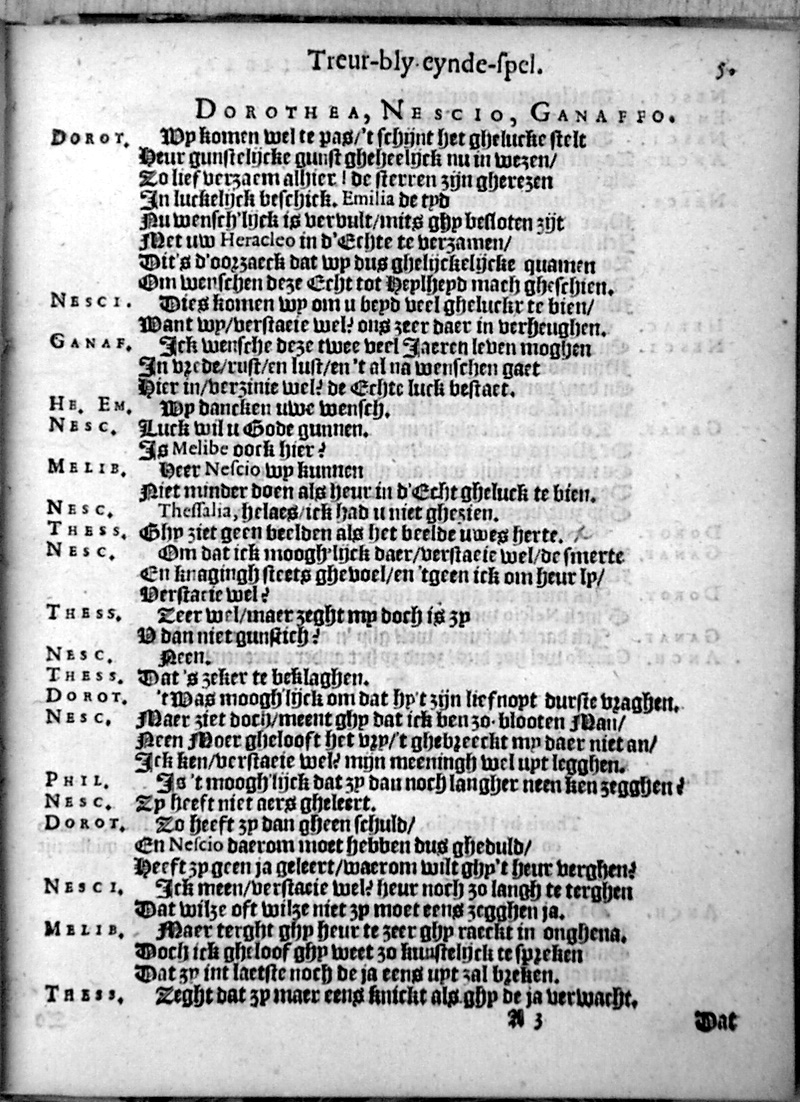 Treur-bly-eynde-spel. 5.
DOROTHEA, NESCIO, GANAFFO.
DOROT. Wy komen wel te pas/'t schijnt het ghelucke stelt
Heur gunstelijcke gunst gheheelijck nu in wezen/
Zo lief verzaem alhier! de sterren zijn gherezen
In luckelijck beschick. Emilia de tyd
Nu wensch'lijck is vervult/mits ghy besloten zijt
Met uw Heracleo in d'Echte te verzamen/
Dit's d'oorzaeck dat wy dus ghelijckelijcke quamen
Om wenschen deze Echt tot Heylheyd mach gheschien.
NESCI. Dies komen wy om u beyd veel gheluckr te bien/
Want wy/verstaeie wel? ons zeer daer in verheughen.
GANAF. Ick wensche deze twee veel Jaeren leven moghen
In vrede/rust/en lust/en 't al na wenschen gaet
Hier in/verzinie wel? de Echte luck bestaet.
HE. EM. Wy dancken uwe wensch.
NESC. Luck wil u Gode gunnen.
Is Melibe oock hier?
MELIB. Heer Nescio wy kunnen
Niet minder doen als heur in d'Echt gheluck te bien.
NESC. Thessalia, helaes/ick had u niet ghezien.
THESS. Ghy ziet geen beelden als het beelde uwes herte.
NESC. Om dat ick moogh'lijck daer/verstaeie wel/de smerte
En knagingh steets ghevoel/en 'tgeen ick om heur ly/
Verstaeie wel?
THESS. Zeer wel/maer zeght my doch is zy
V dan niet gunstich?
NESC. Neen.
THESS. Dat 's zeker te beklaghen.
DOROT. 't Was moogh'lijck om dat hy't zijn lief noyt durste vraghen.
NESC. Maer ziet doch/meent ghy dat ick ben zo blooten Man/
Neen Moer ghelooft het vry/'t ghebreeckt my daer niet an/
Ick ken/verstaeie wel? mijn meeningh wel uyt legghen.
PHIL. Is 't moogh'lijck dat zy dan noch langher neen ken zegghen?
NESC. Zy heeft niet aers gheleert.
DOROT. Zo heeft zy dan gheen schuld/
En Nescio daerom moet hebben dus gheduld/
Heeft zy geen ja geleert/waerom wilt ghy't heur verghen?
NESCI. Ick meen/verstaeie wel? heur noch zo langh te terghen
Dat wilze oft wilze niet zy moet eens zegghen ja.
MELIB. Maer terght ghy heur te zeer ghy raeckt in onghena.
Doch ick gheloof ghy weet zo kunstelijck te spreken
Dat zy int laetste noch de ja eens uyt zal breken.
THESS. Zeght dat zy maer eens knickt als ghy de ja verwacht.
A 3 Dat